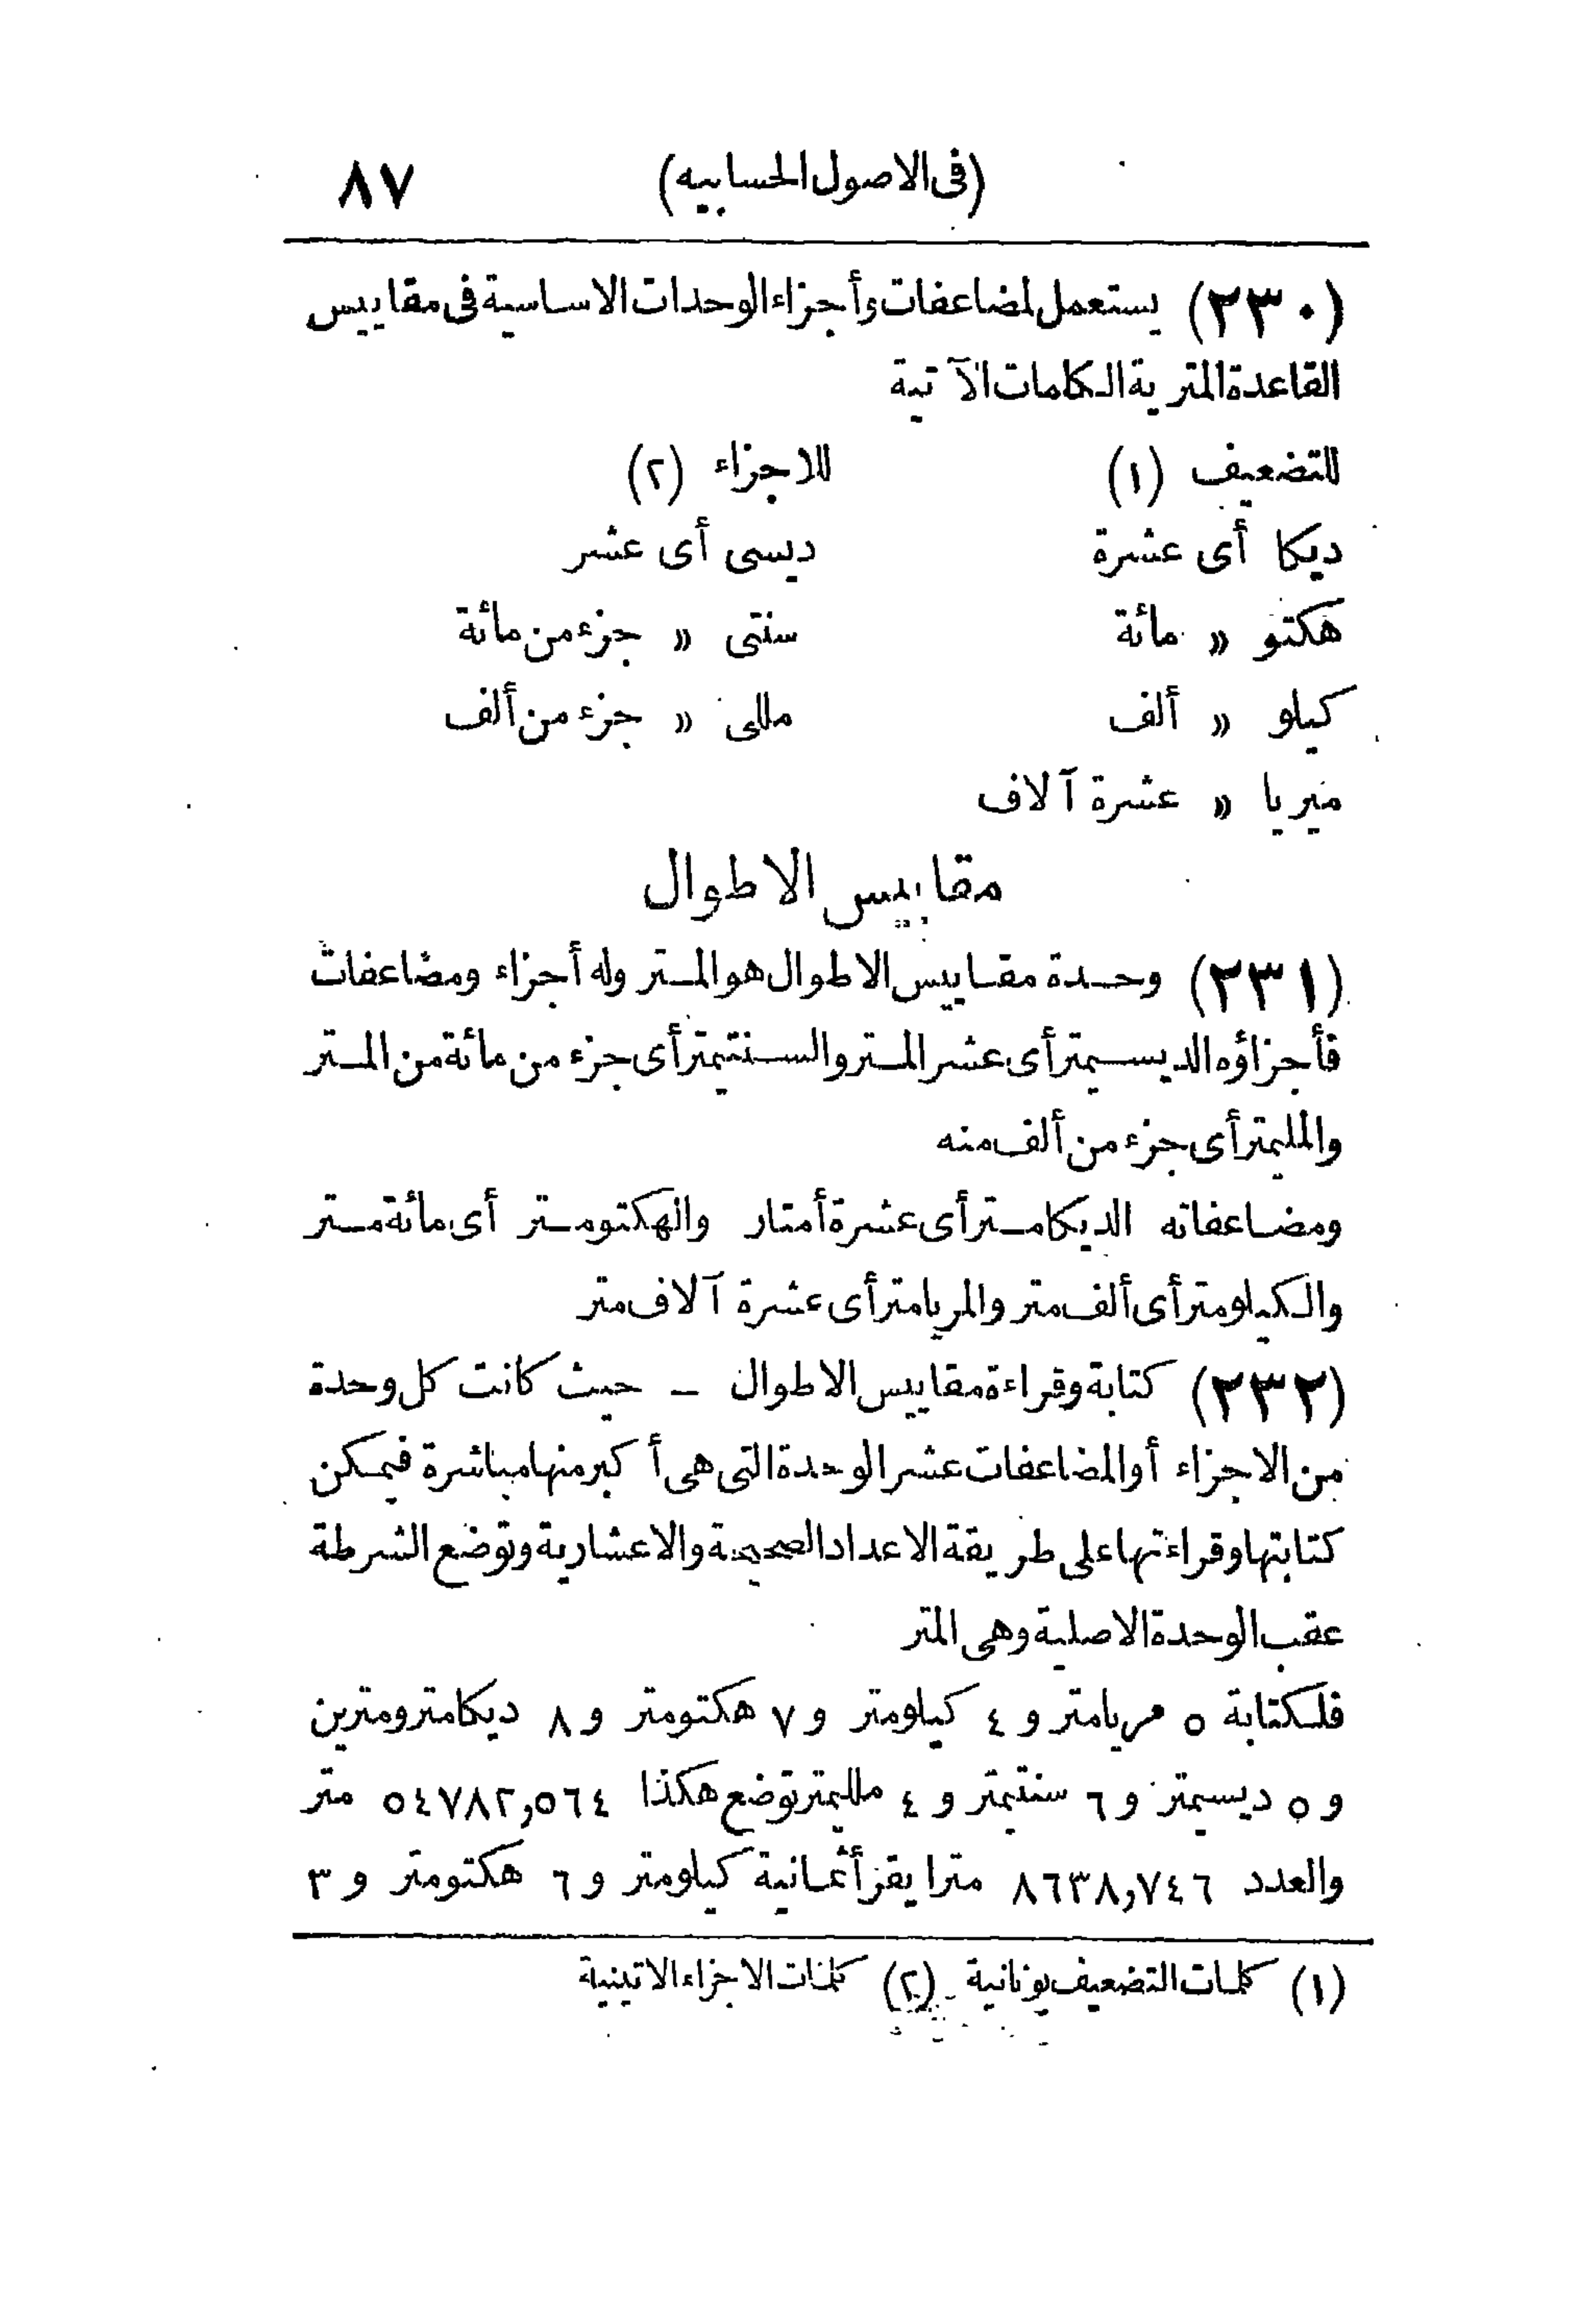 (فى الاصول الحسابيه) ٨٧
(٢٣٠) يستعمل لمضاعفات وأجزاء الوحدات الاساسية فى مقاييس
القاعدة المترية الكلمات الآتية
للتضعيف (١) للاجزاء (٢)
ديكا أى عشرة ديسى أى عشر
هكتو » مائة سنتى » جزء من مائة
كيلو » ألف مللى » جزء من ألف
ميريا » عشرة آلاف
مقاييس الاطوال
(٢٣١) وحدة مقاييس الاطوال هو المتر وله أجزاء ومضاعفات
فأجزاؤه الديسيمتر أى عشر المتر والسنتيمتر أى جزء من مائة من المتر
والمليمتر أى جزء من ألف منه
ومضاعفاته الديكامتر أى عشرة أمتار والهكتومتر أى مائة متر
والكيلومتر أى ألف متر والمريامتر أى عشرة آلاف متر
(٢٣٢) كتابة وقراءة مقاييس الاطوال – حيث كانت كل وحدة
من الاجزاء أو المضاعفات عشر الوحدة التى هى أكبر منها مباشرة فيمكن
كتابتها وقراءتها على طريقة الاعداد الصحيحة والاعشارية وتوضع الشرطة
عقب الوحدة الاصلية وهى المتر
فلكتابة ٥ مريامتر و ٤ كيلومتر و ٧ هكتومتر و ٨ ديكامتر ومترين
و ٥ ديسيمتر و ٦ سنتيمتر و ٤ ملليمتر توضع هكذا ٥٤٧٨٢,٥٦٤ متر
والعدد ٨٦٣٨,٧٤٦ مترا يقرأ ثمانية كيلومتر و ٦ هكتومتر و ٣
(١) كلمات التضعيف يونانية (٢) كلمات الاجزاء لاتينية